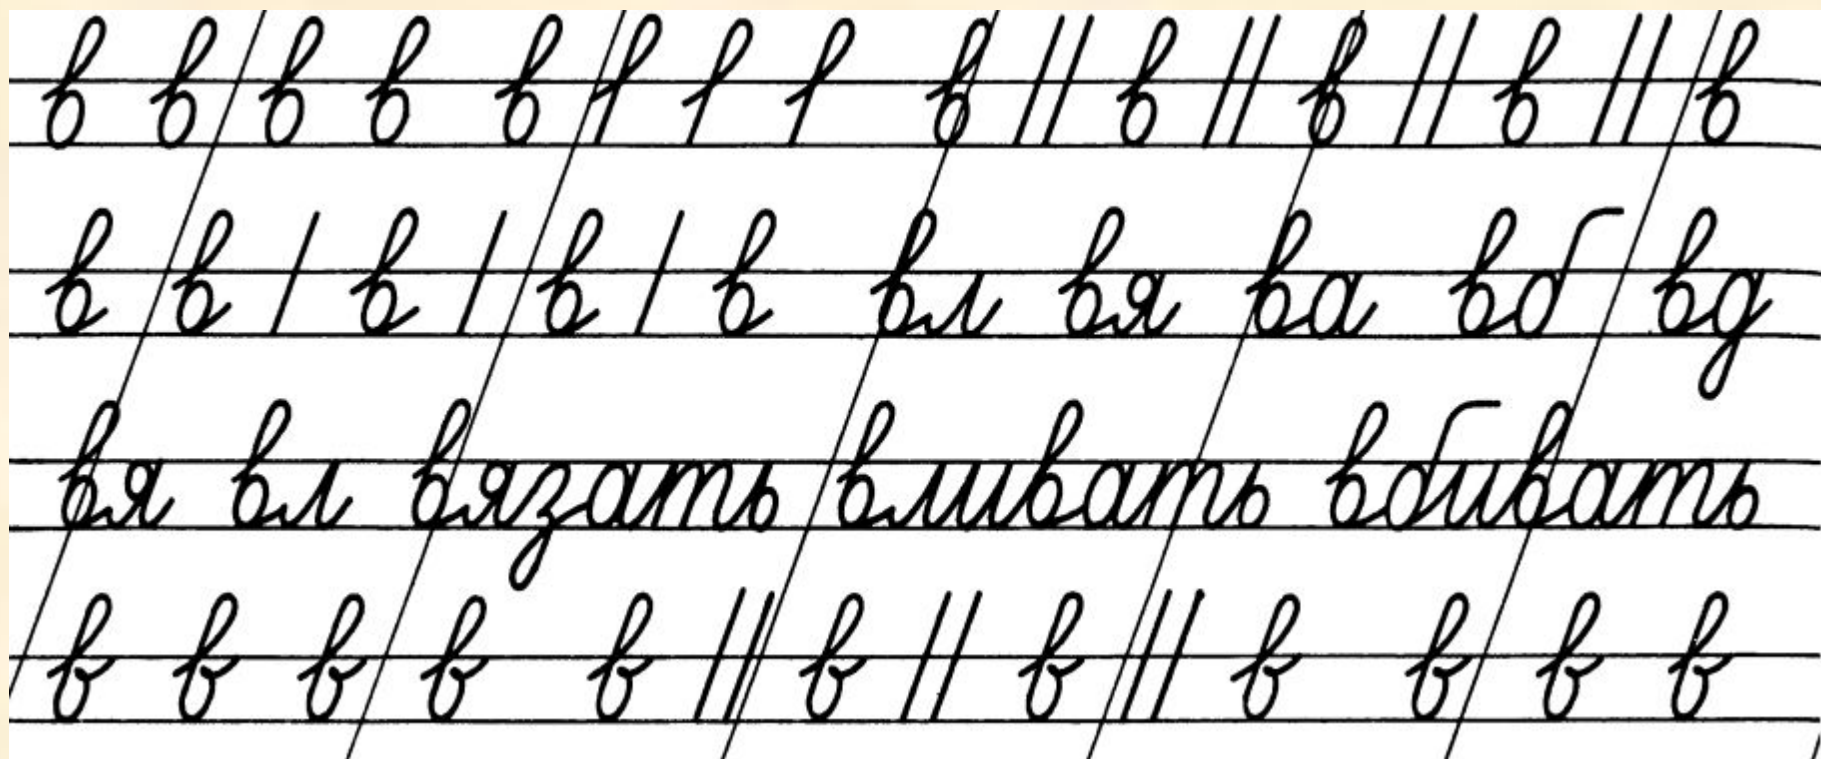 в в в в в в // в // в // в // в
в в / в / в / в вл вя ва вб вд
вя вл вязать вливать вбивать
в в в в в // в // в // в в в в